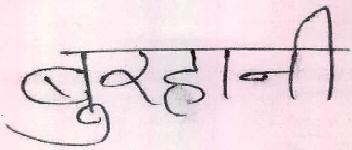 बुरहानी